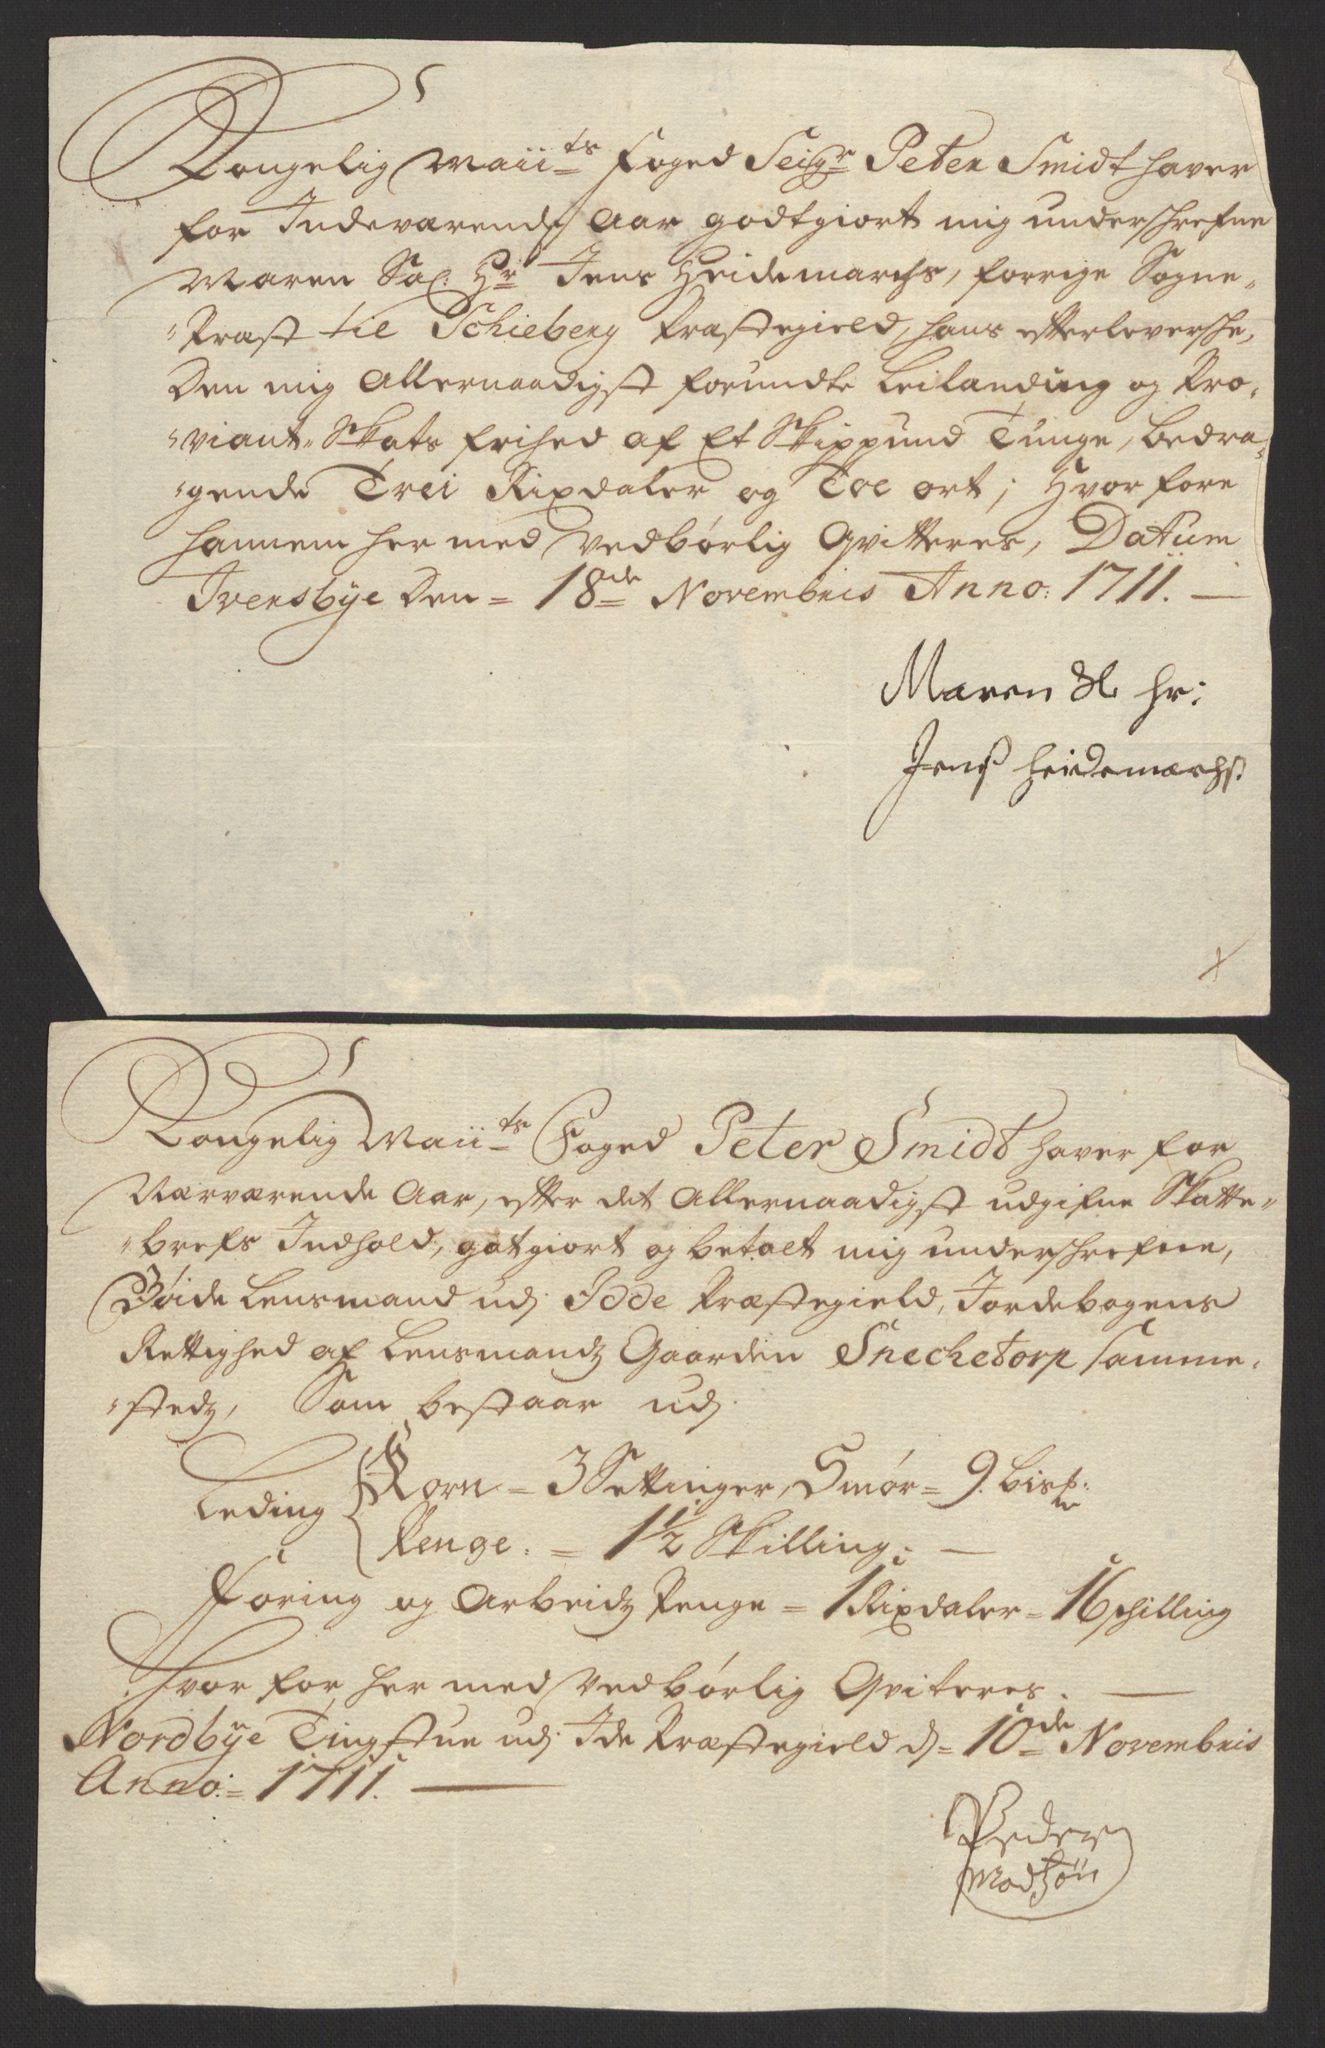 Kongelig Maiits Foged Seigr Peter Smidt haver
for Indeværende Aar godtgiort mig underschrefne
Maren Sal. Hr Jens Heidemarchs, forrige Sogne„
„Præst til Schieberg Præstegield, hans efterleversche,
Den mig Allernaadigst forundte Leilanding og Pro„
„viant„ Skats frihed af Et Skippund Tunge, bedra„
„gende Trei Rixdaler og Toe ort; Hvorfore
hannem her med vedbørlig Qvitteres, Datum
Iversbye Den = 18de Novembris Anno: 1711. —
Maren Sl. Hr:
Jens Heidemarchs.
Kongelig Maiits Foged Peter Smidt haver for
Nærværende Aar, efter det Allernaadigst udgifne Skatte„
„brefs Indhold, gotgiort og betalt mig underschrefne,
Bøide Lensmand udj Idde Præstegield, Jordebogens
Rettighed af Lensmandz Gaarden Snechetorp samme„
„stedz, Som bestaar udj
Leding { Korn = 3 Settinger, Smør = 9. bis:
Penge: = 1½ Skilling: —
Foring og Arbeidz Penge = 1 Rixdaler = 16 schilling
Hvor for her med vedbørlig Qviteres. —
Nordbye Tingstue udj Ide Præstegield d = 10de Novembris
Anno: = 1711. —
Peder
Madtzøn